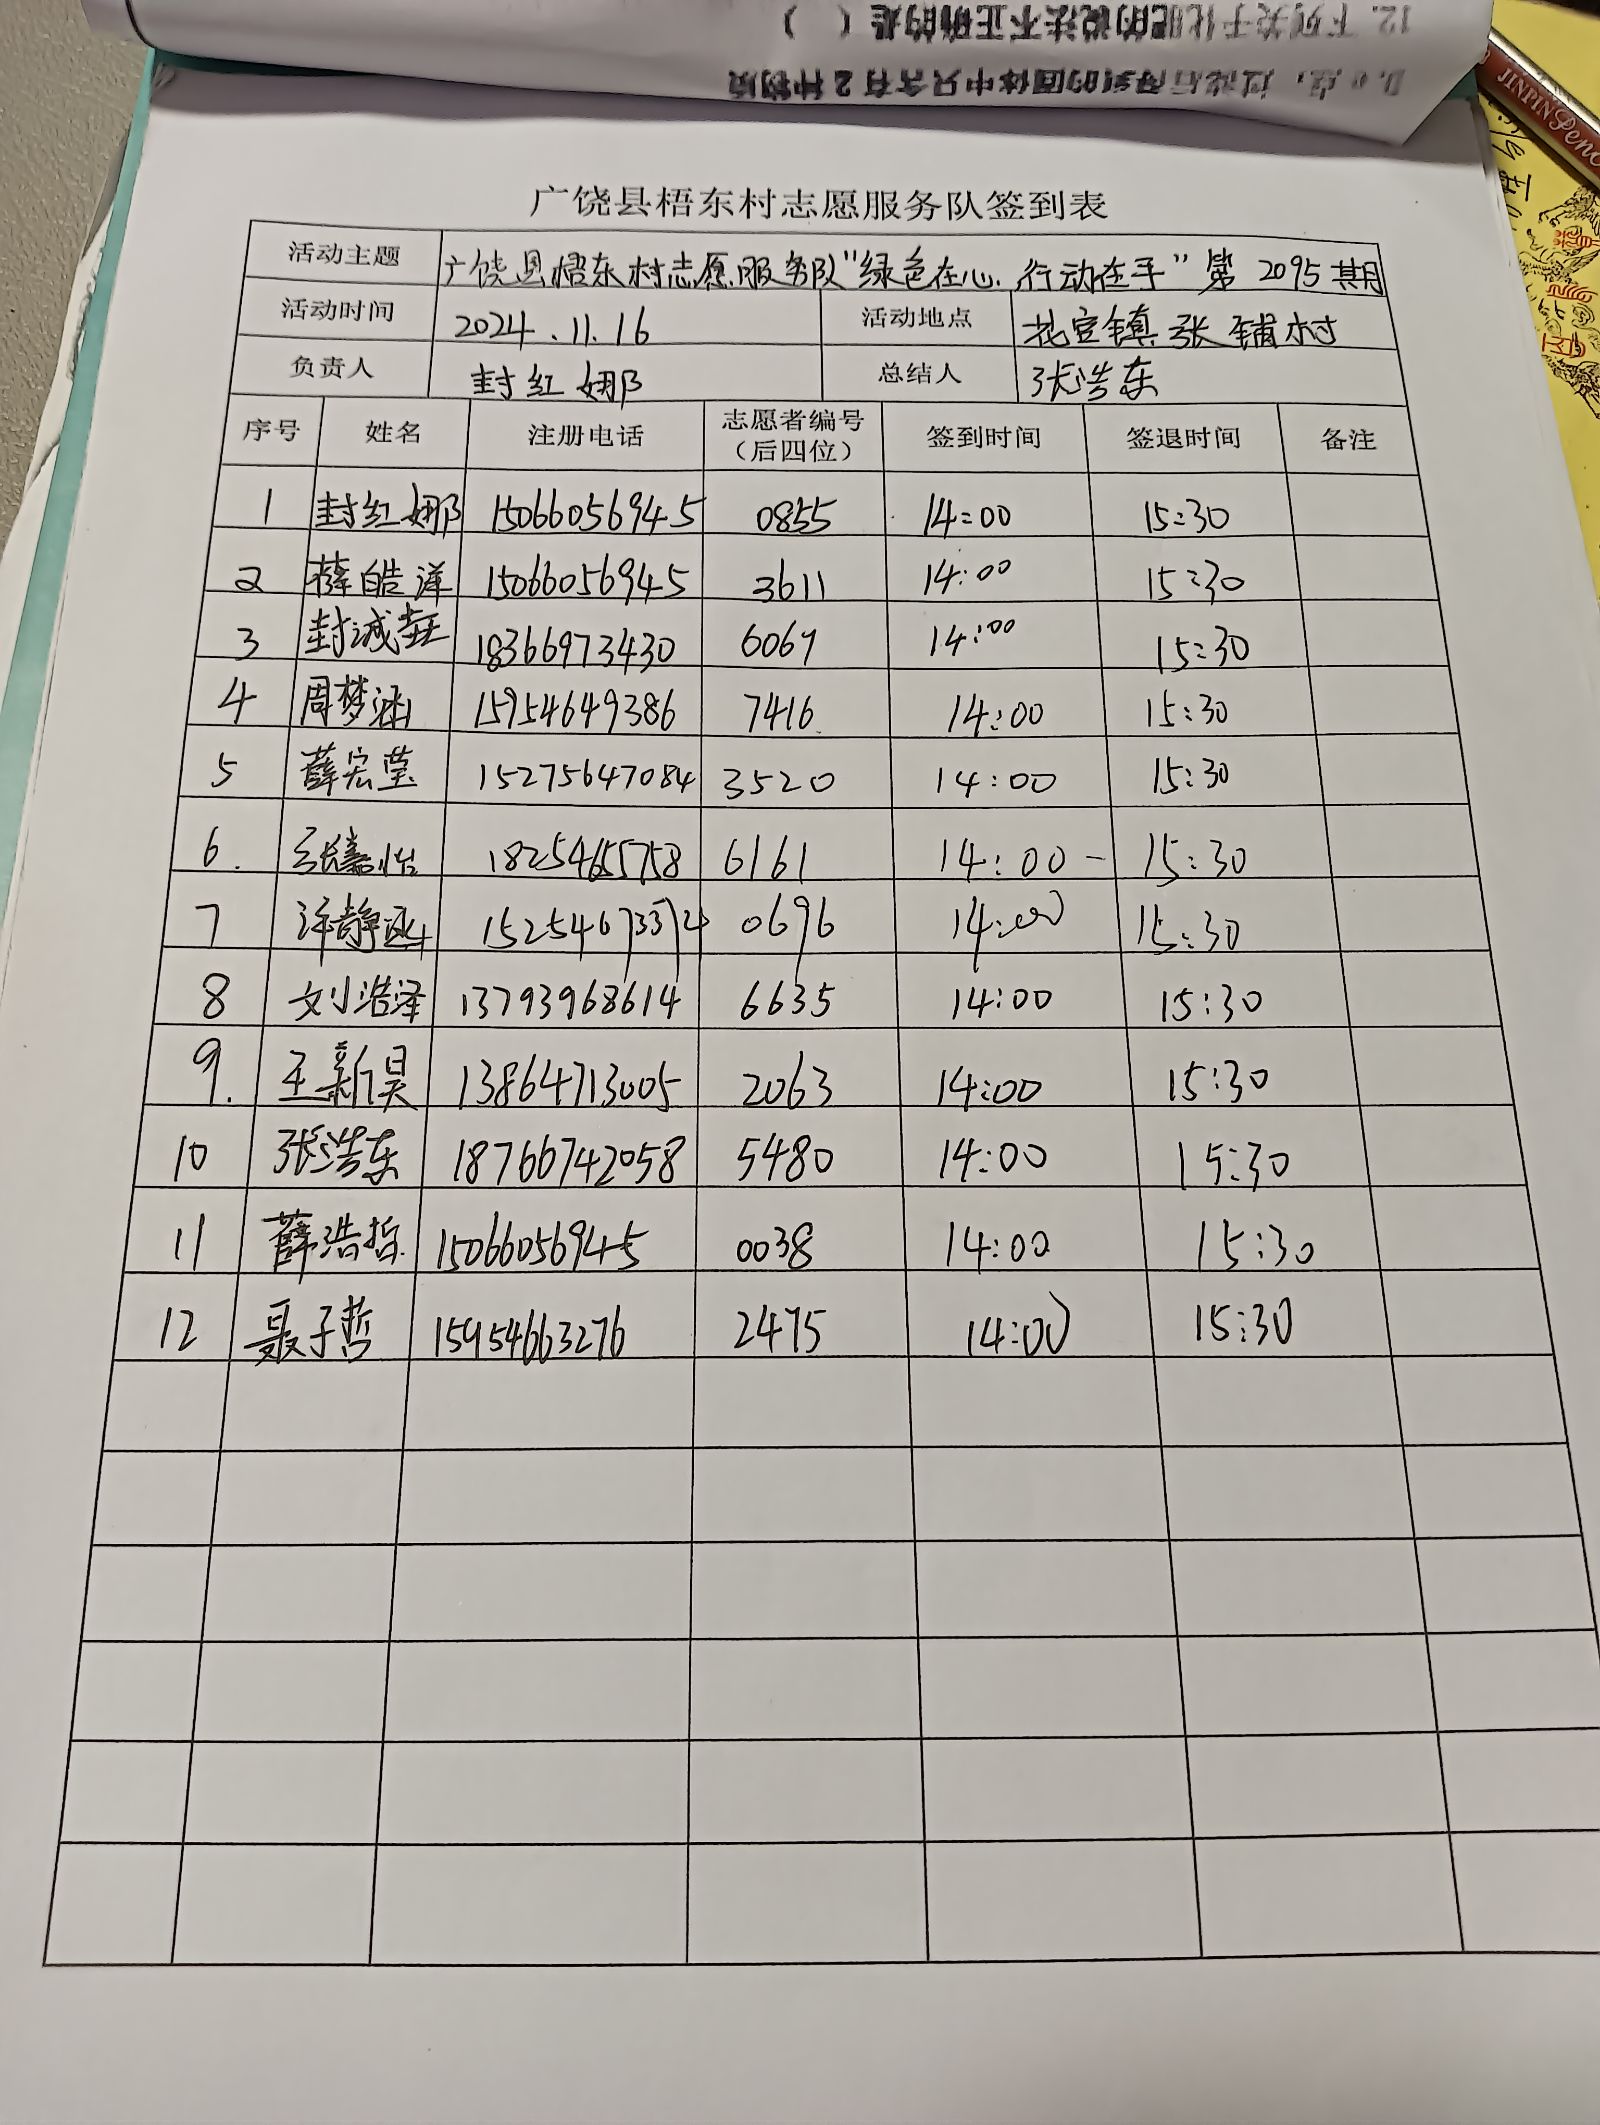 12. 下列关于化肥的说法不正确的是（ ）
D. e 点，过滤后得到的固体中只含有 2 种物质
JINPIN Penc
广饶县梧东村志愿服务队签到表
活动主题 广饶县梧东村志愿服务队“绿色在心 行动在手” 第 2095 期
活动时间 2024.11.16 活动地点 花官镇张铺村
负责人 封红娜 总结人 张浩东
序号 姓名 注册电话 志愿者编号（后四位） 签到时间 签退时间 备注
1 封红娜 15066056945 0855 14:00 15:30
2 薛皓洋 15066056945 3611 14:00 15:30
3 封诚 18366973430 6067 14:00 15:30
4 周梦涵 15954649386 7416 14:00 15:30
5 薛宏莹 15275647084 3520 14:00 15:30
6. 张嘉怡 18254655758 6161 14:00- 15:30
7 许静涵 0696 14:00 15:30
8 刘浩泽 13793968614 6635 14:00 15:30
9. 王新昊 13864713005 2063 14:00 15:30
10 张浩东 18766742058 5480 14:00 15:30
11 薛浩哲 15066056945 0038 14:00 15:30
12 聂子哲 15954663276 2475 14:00 15:30